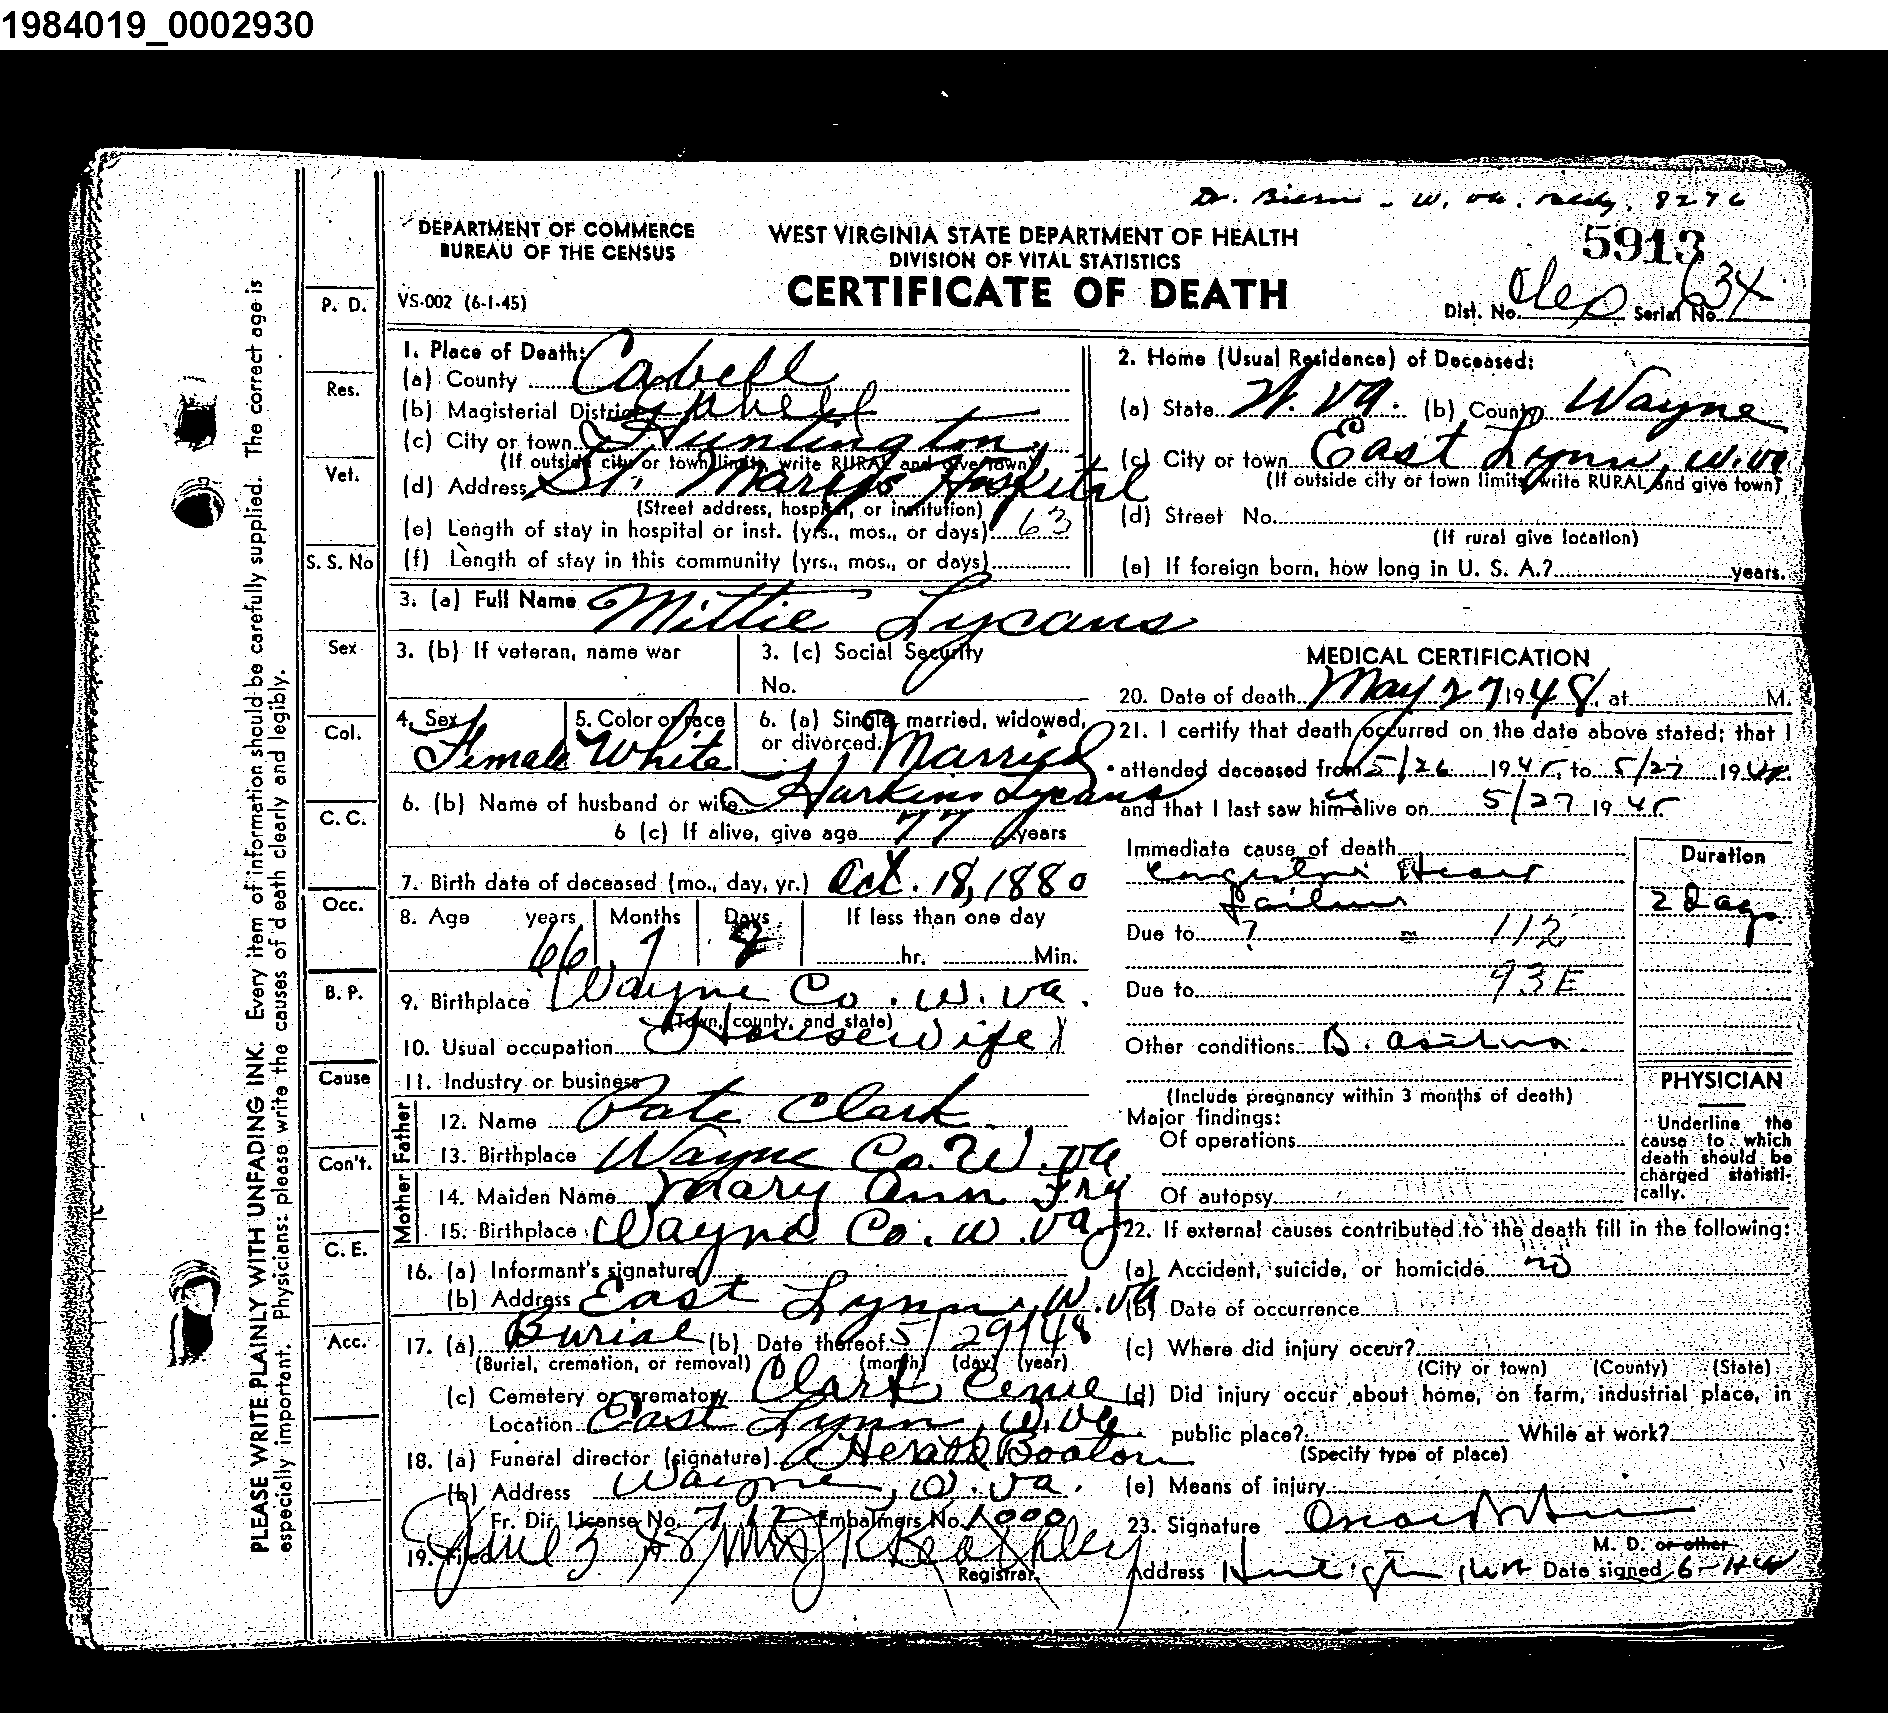 1984019_0002930
Dr. - W. Va. 8276
DEPARTMENT OF COMMERCE
BUREAU OF THE CENSUS
WEST VIRGINIA STATE DEPARTMENT OF HEALTH
DIVISION OF VITAL STATISTICS
CERTIFICATE OF DEATH
5913
VS-002 (6-1-45)
Dist. No. Serial No. 634
PLEASE WRITE PLAINLY WITH UNFADING INK. Every item of information should be carefully supplied. The correct age is
especially important. Physicians: please write the causes of death clearly and legibly.
P. D.
Res.
Vet.
S. S. No
Sex
Col.
C. C.
Occ.
B. P.
Cause
Con't.
C. E.
Acc.
1. Place of Death:
(a) County Cabell
(b) Magisterial District
(c) City or town Huntington
(If outside city or town limits, write RURAL and give town)
(d) Address St. Mary's Hospital
(Street address, hospital, or institution)
(e) Length of stay in hospital or inst. (yrs., mos., or days) 63
(f) Length of stay in this community (yrs., mos., or days)
2. Home (Usual Residence) of Deceased:
(a) State W. Va. (b) County Wayne
(c) City or town East Lynn, W. Va
(If outside city or town limits write RURAL and give town)
(d) Street No.
(If rural give location)
(e) If foreign born, how long in U. S. A.? years.
3. (a) Full Name Mittie Lycans
3. (b) If veteran, name war
3. (c) Social Security
No.
4. Sex Female
5. Color or race White
6. (a) Single, married, widowed,
or divorced. Married
6. (b) Name of husband or wife Harkins Lycans
6 (c) If alive, give age 77 years
7. Birth date of deceased (mo., day, yr.) Oct. 18, 1880
8. Age years Months Days If less than one day
66 7 hr. Min.
9. Birthplace Wayne Co. W. Va.
(Town, county, and state)
10. Usual occupation Housewife
11. Industry or business
Father
12. Name Pate Clark
13. Birthplace Wayne Co. W. Va
Mother
14. Maiden Name Mary Ann Fry
15. Birthplace Wayne Co. W. Va
16. (a) Informant's signature
(b) Address East Lynn, W. Va
17. (a) Burial (b) Date thereof 5/29/48
(Burial, cremation, or removal) (month) (day) (year)
(c) Cemetery or crematory Clark Ceme
Location East Lynn, W. Va
18. (a) Funeral director (signature) Herald Booton
(b) Address Wayne, W. Va.
Fr. Dir. License No. 717 Embalmers No. 1000
19. Filed June 3 48 Mrs J K Keathley
Registrar.
MEDICAL CERTIFICATION
20. Date of death May 27 1948, at M.
21. I certify that death occurred on the date above stated; that I
attended deceased from 5/26 1948, to 5/27 1948
and that I last saw him alive on 5/27 1948
Immediate cause of death
Congestive Heart
Failure
Duration
2 days
Due to ? 112
Due to 93E
Other conditions B. asthma.
(Include pregnancy within 3 months of death)
Major findings:
Of operations
Of autopsy
PHYSICIAN
Underline the
cause to which
death should be
charged statisti-
cally.
22. If external causes contributed to the death fill in the following:
(a) Accident, suicide, or homicide no
(b) Date of occurrence
(c) Where did injury occur?
(City or town) (County) (State)
(d) Did injury occur about home, on farm, industrial place, in
public place? While at work?
(Specify type of place)
(e) Means of injury
23. Signature Oscar
M. D. or other
Address Huntington W Va Date signed 6-1-48